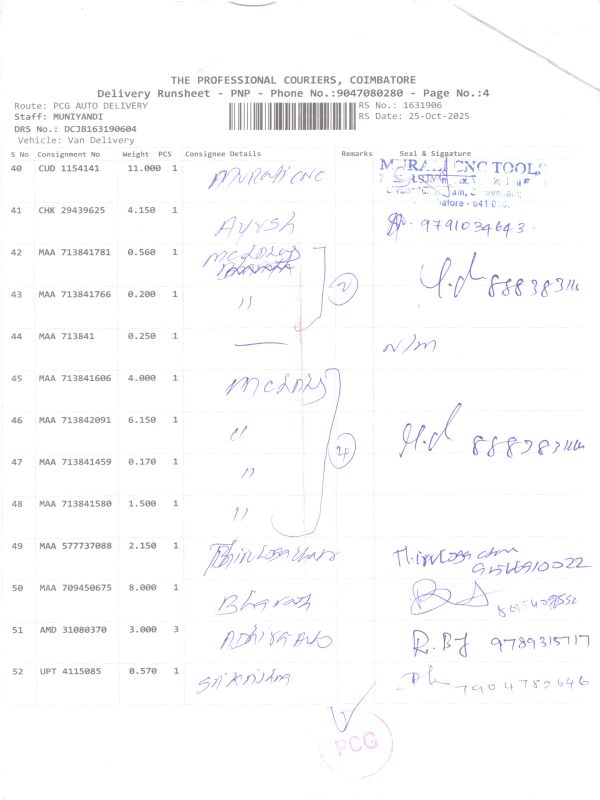 THE PROFESSIONAL COURIERS, COIMBATORE
Delivery Runsheet - PNP - Phone No.:9047080280 - Page No.:4
Route: PCG AUTO DELIVERY RS No.: 1631906
Staff: MUNIYANDI RS Date: 25-Oct-2025
DRS No.: DCJB163190604
Vehicle: Van Delivery
S No Consignment No Weight PCS Consignee Details Remarks Seal & Signature
40 CUD 1154141 11.000 1 Murali CNC MURALI CNC TOOLS
41 CHK 29439625 4.150 1 Ayysh 9791034643
42 MAA 713841781 0.560 1
43 MAA 713841766 0.200 1 " 2
44 MAA 713841 0.250 1 — N/m
45 MAA 713841606 4.000 1
46 MAA 713842091 6.150 1 "
47 MAA 713841459 0.170 1 " 4
48 MAA 713841580 1.500 1 "
49 MAA 577737088 2.150 1
50 MAA 709450675 8.000 1 Bharath
51 AMD 31080370 3.000 3 Adhira Auto R.BJ 9789315717
52 UPT 4115085 0.570 1 Srikrishna 7904782646
PCG